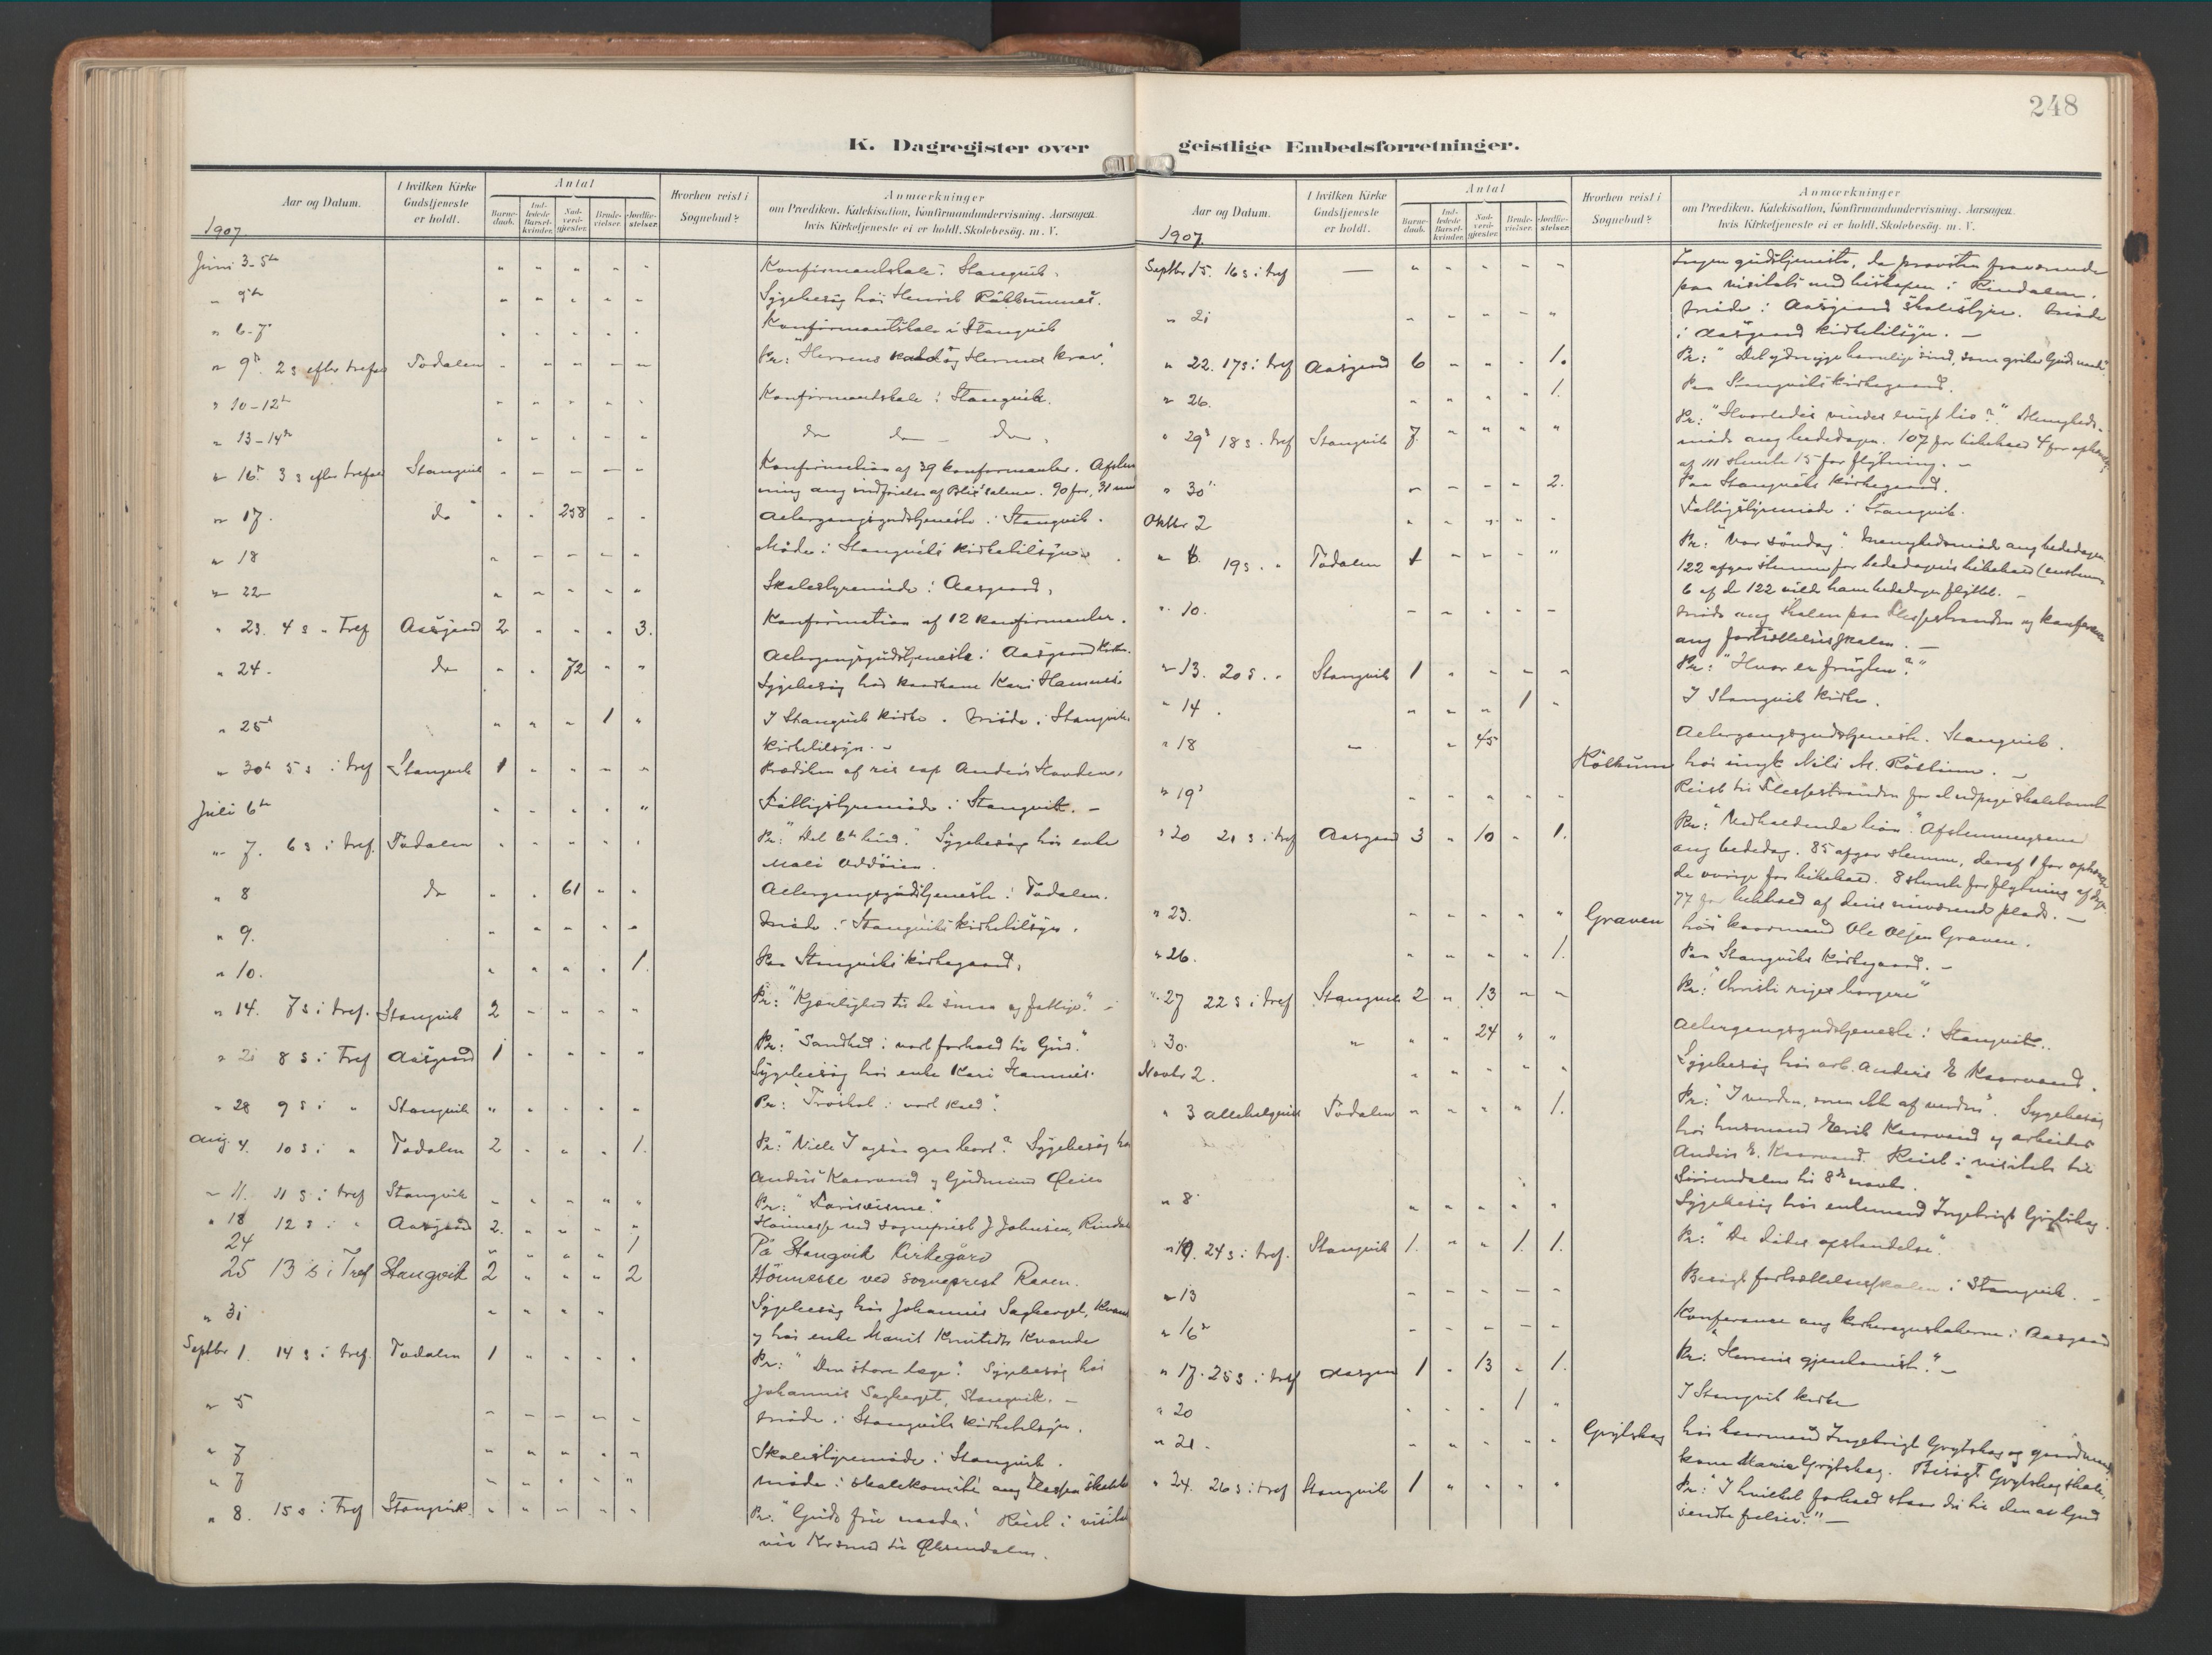 248
K. Dagregister over geistlige Embedsforretninger.
Aar og Datum.
I hvilken Kirke Gudstjeneste er holdt.
Antal
Barnedaab.
Indledede Barselkvinder.
Nadverdgjester.
Brudevielser.
Jordfæstelser.
Hvorhen reist i Sognebud?
Anmærkninger
om Prædiken, Katekisation, Konfirmandundervisning. Aarsagen, hvis Kirketjeneste ei er holdt. Skolebesøg. m. V.
1907
Juni 3-5te " " " " " Konfirmantskole i Stangvik.
" 5te " " " " " Sygebesøg hos Henrik
" 6-7 " " " " " Konfirmantskole i Stangvik
" 9de 2 s efter trefol Todalen " " " " " Pr: "Herrens kald og Herrens krav."
" 10-12te " " " " " Konfirmantskole i Stangvik.
" 13-14de " " " " " do do do.
" 16de 3 s efter trefol Stangvik " " " " " Konfirmation af 39 konfirmanter.
ning ang indførelse af Blix' salmer. 90 for, 31 mod
" 17. do " " 258 " " Altergangsgudstjeneste i Stangvik.
" 18 " " " " " Møde i Stangviks kirketilsyn.
" 22 " " " " " Skolestyremøde i Aasgaard.
" 23. 4 s " Tref Aasgaard 2 " " " 3. Konfirmation af 12 konfirmanter.
" 24. do " " 72 " " Altergangsgudstjeneste i Aasgaard Kirke.
Sygebesøg hos Kari Hamnes
" 25de " " " 1 " I Stangvik kirke. Møde i Stangvik
kirketilsyn.
" 30te 5 s i tref Stangvik 1 " " " " Prædiken af res cap Anders
Juli 6te " " " " " Fattigstyremøde i Stangvik.
" 7. 6 s i tref. Todalen " " " " " Pr: "Det 6te bud." Sygebesøg hos enke
Mali Oddøien.
" 8 do " " 61 " " Altergangsgudstjeneste i Todalen.
" 9. " " " " " Møde i Stangviks kirketilsyn.
" 10. " " " " 1. Paa Stangviks kirkegaard.
" 14. 7 s i tref. Stangvik 2 " " " " Pr: "Kjærlighed til de smaa og fattige."
" 21 8 s i Tref Aasgaard 1 " " " " Pr: "Sandhed i vort forhold til Gud."
Sygebesøg hos enke Kari Hamnes.
" 28 9 s i " Stangvik " " " " " Pr: "Troskab i vort kald".
Aug. 4. 10 s i " Todalen 2 " " " 1. Pr: "Ville I ogsaa gaa bort?" Sygebesøg hos
Anders Kaarvand og Gudmund Øien
" 11. 11 s i tref Stangvik " " " " " Pr: "Farisæisme."
" 18 12 s i " Aasgaard 2 " " " " Høimesse ved sogneprest J Johnsen, Rindal
24 " " " " 1 På Stangvik Kirkegård
25 13 s i Tref Stangvik 2 " " " 2 Høimesse ved sogneprest Raaen.
" 31 " " " " Sygebesøg hos Johannes Sagberget, Kvande
og hos enke Marit Knutsdtr Kvande
Septbr 1. 14 s i tref. Todalen 1 " " " " Pr: "Den store læge." Sygebesøg hos
Johannes Sagberget, Stangvik.
" 5 " " " " " Møde i Stangviks kirketilsyn.
" 7 " " " " " Skolestyremøde i Stangvik.
" 7 " " " " " Møde i skolekomite ang
" 8. 15 s i Tref Stangvik. " " " " " Pr: "Guds frie naade." Reist i visitats
via Krsund til Øksendalen.
Aar og Datum.
I hvilken Kirke Gudstjeneste er holdt.
Antal
Barnedaab.
Indledede Barselkvinder.
Nadverdgjester.
Brudevielser.
Jordfæstelser.
Hvorhen reist i Sognebud?
Anmærkninger
om Prædiken, Katekisation, Konfirmandundervisning. Aarsagen, hvis Kirketjeneste ei er holdt. Skolebesøg. m. V.
1907
Septbr 15. 16 s i tref — " " " " " Ingen gudstjeneste, da provsten fraværende
paa visitats med biskopen i Rindalen.
" 21 " " " " " Møde i Aasgaard skolestyre. Møde
i Aasgaard kirketilsyn.
" 22. 17 s i tref Aasgaard 6 " " " 1. Pr: "Det ydmyge barnlige sind, som griber Guds naade."
" 26. " " " " 1. Paa Stangviks kirkegaard.
" 29de 18 s i tref Stangvik 7 " " " " Pr: "Hvorledes vindes evigt liv?" Menigheds-
møde ang bededagen. 107 for bibehold 4 for ophævelse
af 111 stemte 15 for flytning.
" 30te " " " " 2. Paa Stangviks kirkegaard.
Oktbr 2 " " " " " Fattigstyremøde i Stangvik.
" 6. 19 s. " Todalen 1 " " " " Pr: "Vor søndag". Menighedsmøde ang bededagen
122 afgav stemme for bededagens bibehold
6 af de 122 vilde have bededagen flyttet.
" 10. " " " " " Møde ang skolen paa
ang fortsættelsesskolen.
" 13. 20 s. " Stangvik 1 " " " " Pr: "Hvor er frugten?"
" 14. " " " 1 " I Stangvik kirke.
" 18 " " 45 Altergangsgudstjeneste. Stangvik.
hos ungk Nils M.
" 19de " " " " " Reist til
" 20 21 s i tref Aasgaard 3 " 10 " 1. Pr: Afstemningerne
ang bededag. 85 afgav stemme, deraf 1 for ophævelse
de øvrige for bibehold. 8 stemte for flytning af dagen
77 for bibehold af dens nuværende plads.
" 23. " " " " " Graven hos kaarmand Ole Olsen Graven.
" 26. " " " " 1. Paa Stangviks Kirkegaard.
" 27 22 s i tref Stangvik 2 " 13 " " Pr: "Christi riges borgere"
" 30. " " " 24 " " Altergangsgudstjeneste i Stangvik.
Novbr 2. " " " " " Sygebesøg hos arb. Anders E Kaarvand.
" 3 allehelgens Todalen " " " " 1. Pr: "I verden, men ikke af verden". Sygebesøg
hos husmand Erik Kaarvand og arbeider
Anders E. Kaarvand. Reist i visitats til
Surendalen til 8de novbr.
" 8 " " " " " Sygebesøg hos enkemand Ingebrigt Grytskog.
" 10. 24 s i tref. Stangvik 1. " " 1. 1. Pr: "De dødes opstandelse".
" 13 " " " " " Besøgt fortsættelsesskolen i Stangvik.
" 16de " " " " " Konferance ang i Aasgaard
" 17. 25 s i tref Aasgaard 1 " 13 " 1. Pr: "Herrens gjenkomst."
" 20 " " " 1 " I Stangvik kirke
" 21. " " " " " Grytskog hos kaarmand Ingebrigt Grytskog og
kone Marie Grytskog. Besøgt Grytskog skole.
" 24. 26 s i tref Stangvik 1 " " " " Pr: "I hvilket forhold staar du til den av Gud
sendte frelser?"